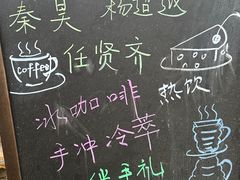 秦昊 杨超越
coffee 任贤齐
热饮
冰咖啡
手冲冷萃
伴手礼